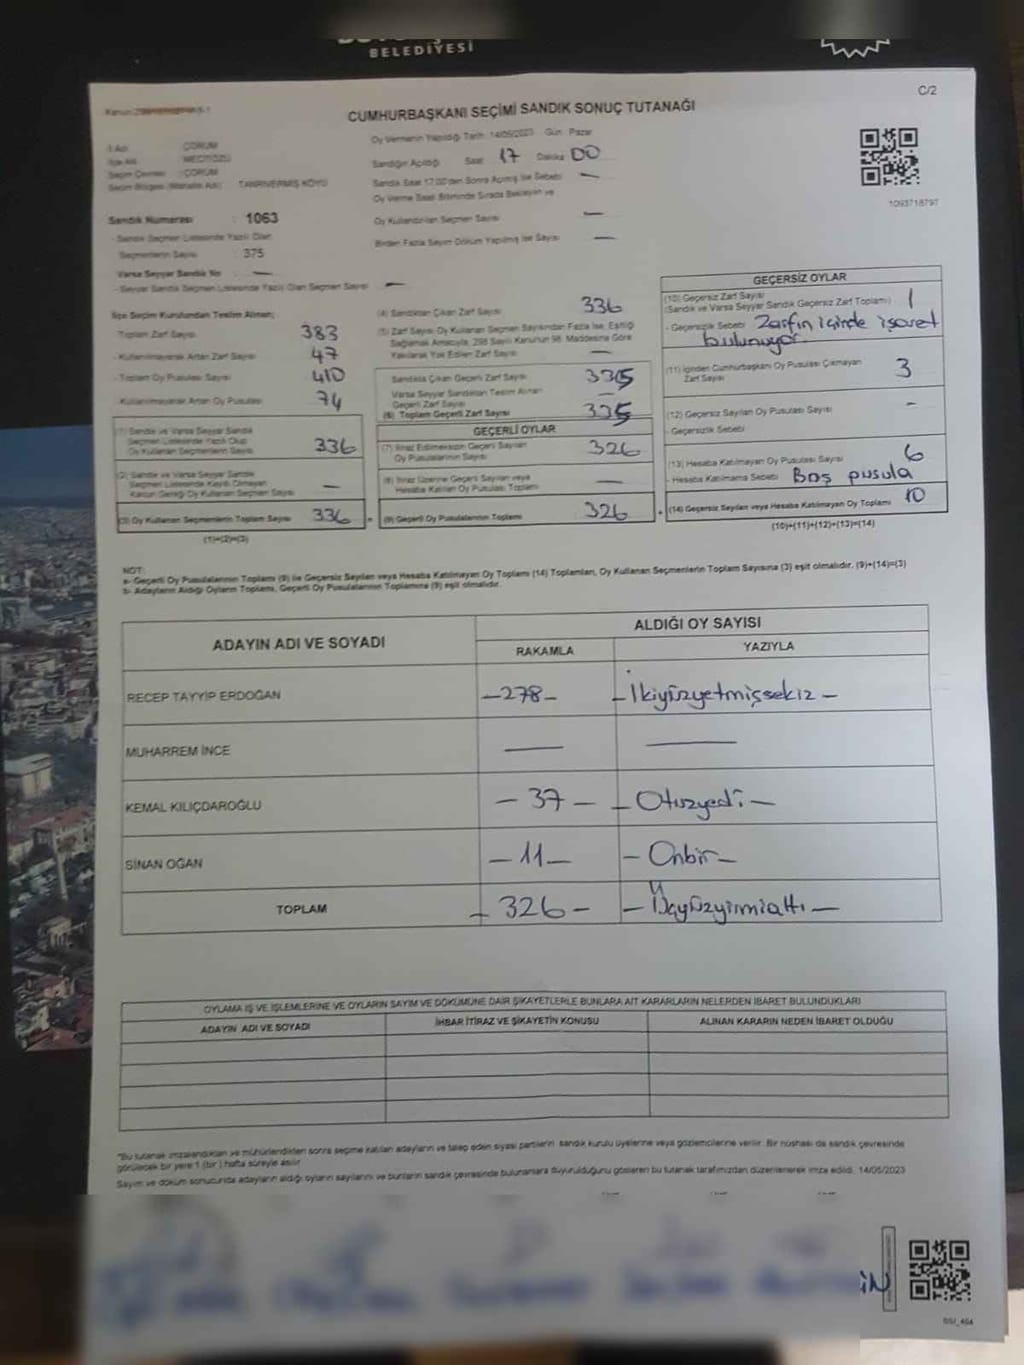 BELEDİYESİ
C/2
CUMHURBAŞKANI SEÇİMİ SANDIK SONUÇ TUTANAĞI
Oy Vermenin Yapıldığı Tarih 14/05/2023 Gün Pazar
İl Adı ÇORUM
İlçe Adı MECİTÖZÜ
Seçim Çevresi ÇORUM
Seçim Bölgesi (Mahalle Adı) TANRIVERMİŞ KÖYÜ
Sandığın Açıldığı Saat 17 Dakika 00
Sandık Saat 17.00'den Sonra Açılmış İse Sebebi —
Oy Verme Saati Bitiminde Sırada Bekleyen ve
Oy Kullandırılan Seçmen Sayısı —
Birden Fazla Sayım Döküm Yapılmış İse Sayısı —
1093718797
Sandık Numarası : 1063
- Sandık Seçmen Listesinde Yazılı Olan
Seçmenlerin Sayısı : 375
Varsa Seyyar Sandık No : —
- Seyyar Sandık Seçmen Listesinde Yazılı Olan Seçmen Sayısı —
İlçe Seçim Kurulundan Teslim Alınan;
Toplam Zarf Sayısı 383
- Kullanılmayarak Artan Zarf Sayısı 47
- Toplam Oy Pusulası Sayısı 410
- Kullanılmayarak Artan Oy Pusulası 74
(1) Sandık ve Varsa Seyyar Sandık
Seçmen Listesinde Yazılı Olup
Oy Kullanan Seçmenlerin Sayısı 336
(2) Sandık ve Varsa Seyyar Sandık
Seçmen Listesinde Kayıtlı Olmayan
Kanun Gereği Oy Kullanan Seçmen Sayısı —
(3) Oy Kullanan Seçmenlerin Toplam Sayısı 336
(1)+(2)=(3)
(4) Sandıktan Çıkan Zarf Sayısı 336
(5) Zarf Sayısı Oy Kullanan Seçmen Sayısından Fazla İse, Eşitliği
Sağlamak Amacıyla, 298 Sayılı Kanunun 98. Maddesine Göre
Yakılarak Yok Edilen Zarf Sayısı —
Sandıkta Çıkan Geçerli Zarf Sayısı 335
Varsa Seyyar Sandıktan Teslim Alınan
Geçerli Zarf Sayısı —
(6) Toplam Geçerli Zarf Sayısı 335
GEÇERLİ OYLAR
(7) İtiraz Edilmeksizin Geçerli Sayılan
Oy Pusulalarının Sayısı 326
(8) İtiraz Üzerine Geçerli Sayılan veya
Hesaba Katılan Oy Pusulası Toplamı —
= (9) Geçerli Oy Pusulalarının Toplamı 326
GEÇERSİZ OYLAR
(10) Geçersiz Zarf Sayısı
(Sandık ve Varsa Seyyar Sandık Geçersiz Zarf Toplamı) 1
- Geçersizlik Sebebi Zarfın içinde işaret
bulunuyor.
(11) İçinden Cumhurbaşkanı Oy Pusulası Çıkmayan
Zarf Sayısı 3
(12) Geçersiz Sayılan Oy Pusulası Sayısı -
- Geçersizlik Sebebi
(13) Hesaba Katılmayan Oy Pusulası Sayısı 6
- Hesaba Katılmama Sebebi Boş pusula
+ (14) Geçersiz Sayılan veya Hesaba Katılmayan Oy Toplamı 10
(10)+(11)+(12)+(13)=(14)
NOT:
a- Geçerli Oy Pusulalarının Toplamı (9) ile Geçersiz Sayılan veya Hesaba Katılmayan Oy Toplamı (14) Toplamları, Oy Kullanan Seçmenlerin Toplam Sayısına (3) eşit olmalıdır. (9)+(14)=(3)
b- Adayların Aldığı Oyların Toplamı, Geçerli Oy Pusulalarının Toplamına (9) eşit olmalıdır.
ADAYIN ADI VE SOYADI ALDIĞI OY SAYISI
RAKAMLA YAZIYLA
RECEP TAYYİP ERDOĞAN —278— —İkiyüzyetmişsekiz—
MUHARREM İNCE — —
KEMAL KILIÇDAROĞLU —37— —Otuzyedi—
SİNAN OĞAN —11— —Onbir—
TOPLAM —326— —Üçyüzyirmialtı—
OYLAMA İŞ VE İŞLEMLERİNE VE OYLARIN SAYIM VE DÖKÜMÜNE DAİR ŞİKAYETLERLE BUNLARA AİT KARARLARIN NELERDEN İBARET BULUNDUKLARI
ADAYIN ADI VE SOYADI İHBAR İTİRAZ VE ŞİKAYETİN KONUSU ALINAN KARARIN NEDEN İBARET OLDUĞU
"Bu tutanak imzalandıktan ve mühürlendikten sonra seçime katılan adayların ve talep eden siyasi partilerin sandık kurulu üyelerine veya gözlemcilerine verilir. Bir nüshası da sandık çevresinde
görülecek bir yere 1 (bir) hafta süreyle asılır.
Sayım ve döküm sonucunda adayların aldığı oyların sayılarını ve bunların sandık çevresinde bulunanlara duyurulduğunu gösteren bu tutanak tarafımızdan düzenlenerek imza edildi. 14/05/2023